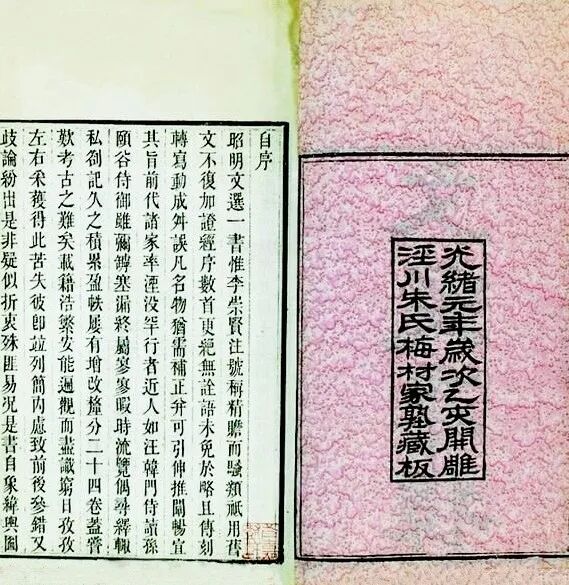 光緒元年歲次乙亥開雕
涇川朱氏梅村家塾藏板
自序
昭明文選一書惟李崇賢注號稱精贍而騷類祇用舊
文不復加證經序數首更絕無詮語未免於略且傳刻
轉寫動成舛誤凡名物猶需補正并可引伸推闡暢宣
其旨前代諸家率湮沒罕行者近人如汪韓門侍讀孫
頤谷侍御雖彌罅塞漏終屬寥寥暇時流覽偶尋繹輒
私劄記久之積累盈帙屢有增改釐分二十四卷蓋嘗
歎考古之難矣載籍浩繁安能遍觀而盡識窮日孜孜
左右采獲得此苦失彼卽竝列簡內慮致前後參錯又
歧論紛出是非疑似折衷殊匪易況是書自象緯輿圖